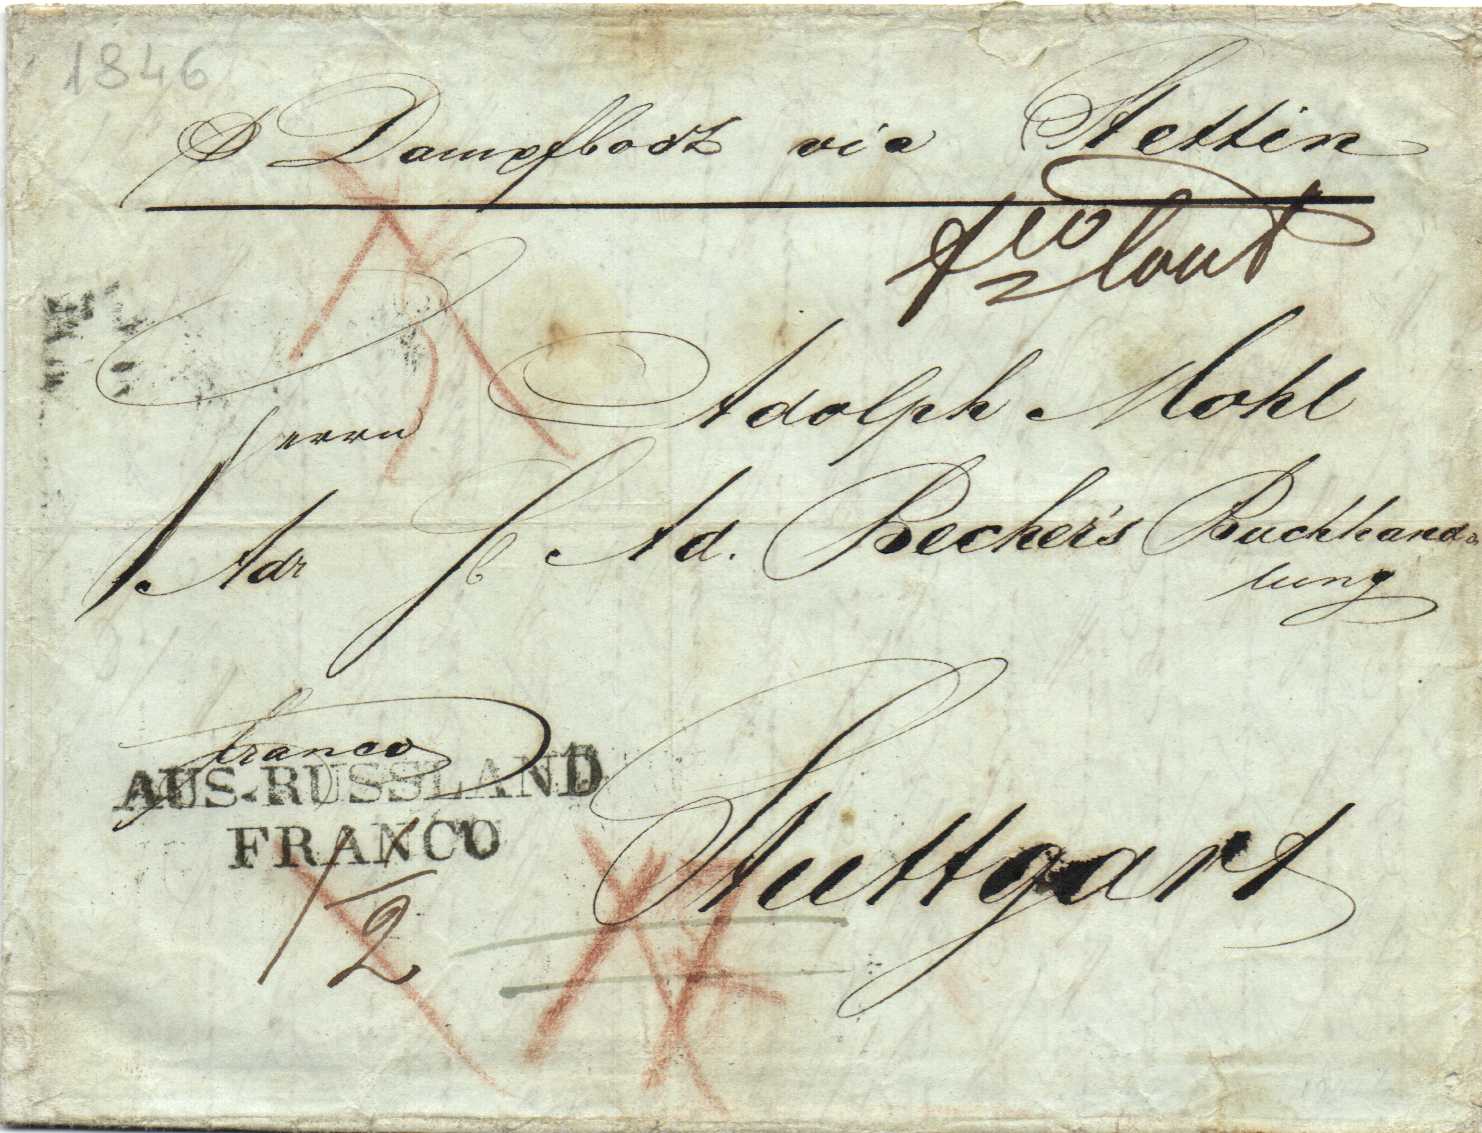 1846
p Dampfboot via Stettin
fco
Herrn Adolph Mohl
Adr Ad. Becher's Buchhand=
lung
franco
AUS-RUSSLAND
FRANCO
Stuttgart
1/2